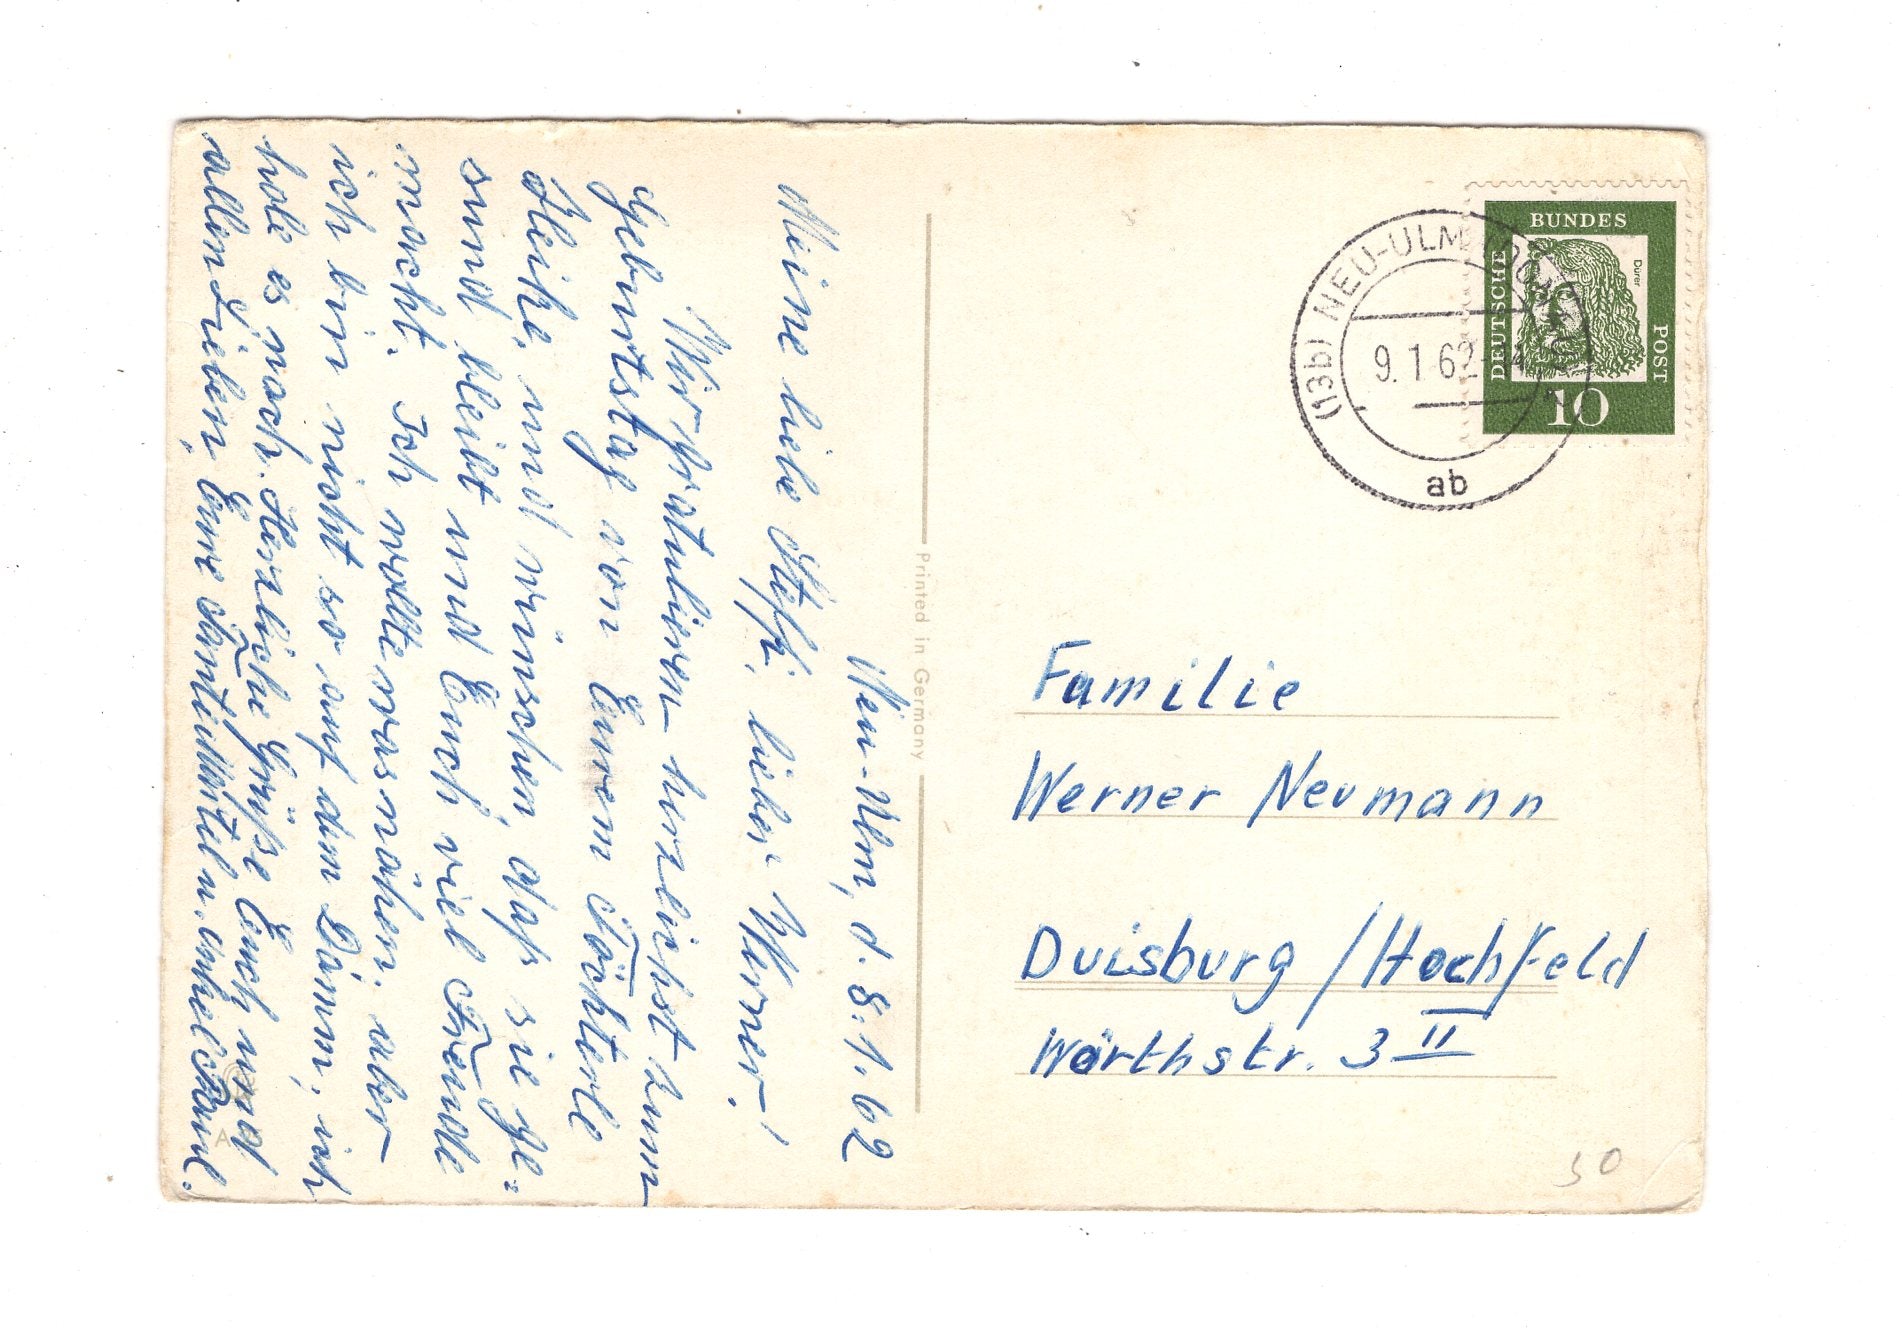 Neu-Ulm, d. 8.1.62
Meine liebe Steffi, lieber Werner!
Wir gratulieren herzlichst zum
Geburtstag von Eurem Töchterle
Heike, und wünschen, daß sie ge-
sund bleibt und Euch viel Freude
macht. Ich wollte was nähen. aber
ich bin nicht so auf dem Damm, ich
hole es nach. Herzliche Grüße Euch und
allen Lieben, Eure Tante u. onkel Paul.
Printed in Germany
BUNDES
DEUTSCHE
POST
Dürer
10
(13b) NEU-ULM
9.1.62
ab
Familie
Werner Neumann
Duisburg / Hochfeld
Wörthstr. 3 II
A
50